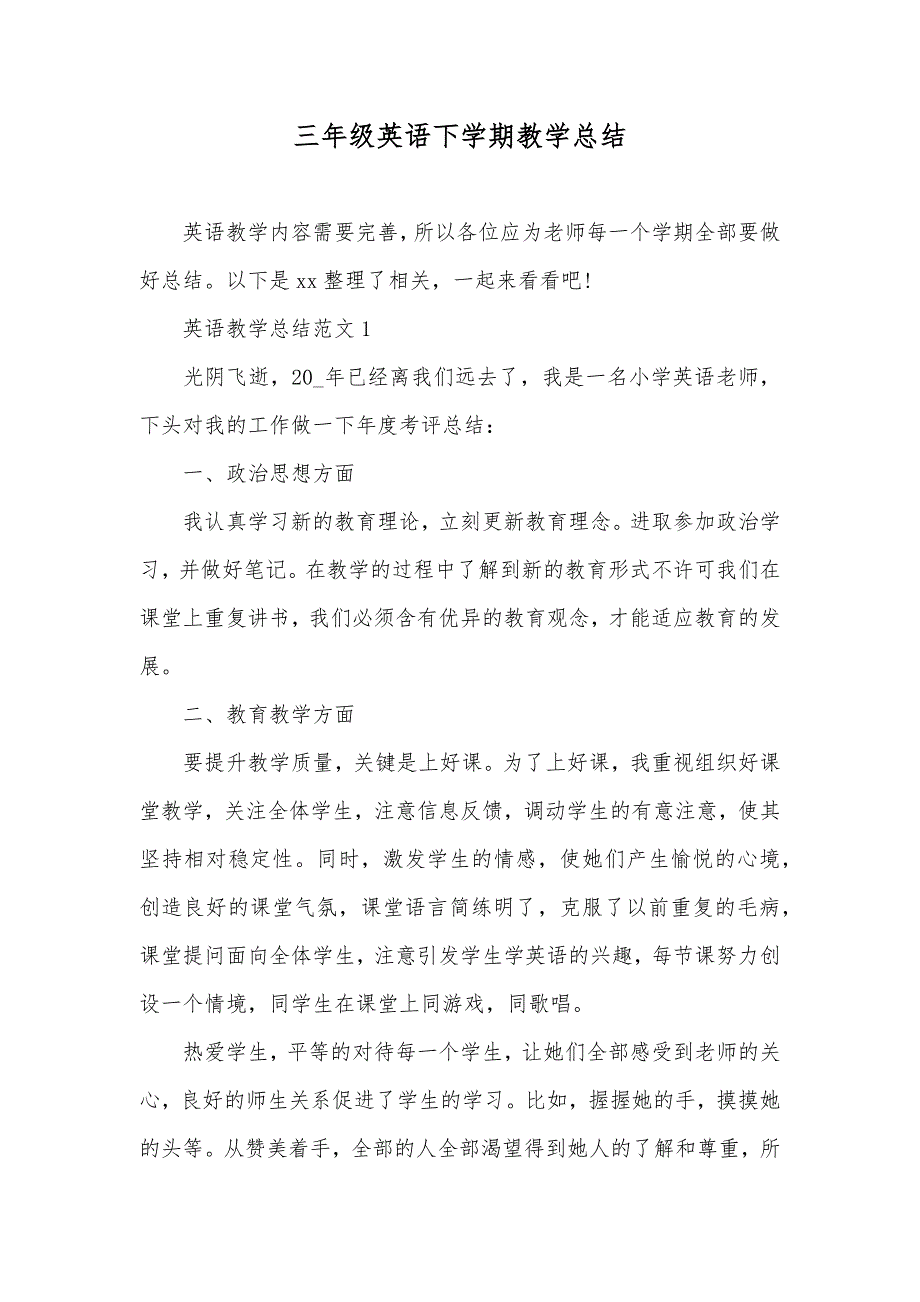 三年级英语下学期教学总结
英语教学内容需要完善，所以各位应为老师每一个学期全部要做
好总结。以下是 xx 整理了相关，一起来看看吧！
英语教学总结范文 1
光阴飞逝，20_年已经离我们远去了，我是一名小学英语老师，
下头对我的工作做一下年度考评总结：
一、政治思想方面
我认真学习新的教育理论，立刻更新教育理念。进取参加政治学
习，并做好笔记。在教学的过程中了解到新的教育形式不许可我们在
课堂上重复讲书，我们必须含有优异的教育观念，才能适应教育的发
展。
二、教育教学方面
要提升教学质量，关键是上好课。为了上好课，我重视组织好课
堂教学，关注全体学生，注意信息反馈，调动学生的有意注意，使其
坚持相对稳定性。同时，激发学生的情感，使她们产生愉悦的心境，
创造良好的课堂气氛，课堂语言简练明了，克服了以前重复的毛病，
课堂提问面向全体学生，注意引发学生学英语的兴趣，每节课努力创
设一个情境，同学生在课堂上同游戏，同歌唱。
热爱学生，平等的对待每一个学生，让她们全部感受到老师的关
心，良好的师生关系促进了学生的学习。比如，握握她的手，摸摸她
的头等。从赞美着手，全部的人全部渴望得到她人的了解和尊重，所